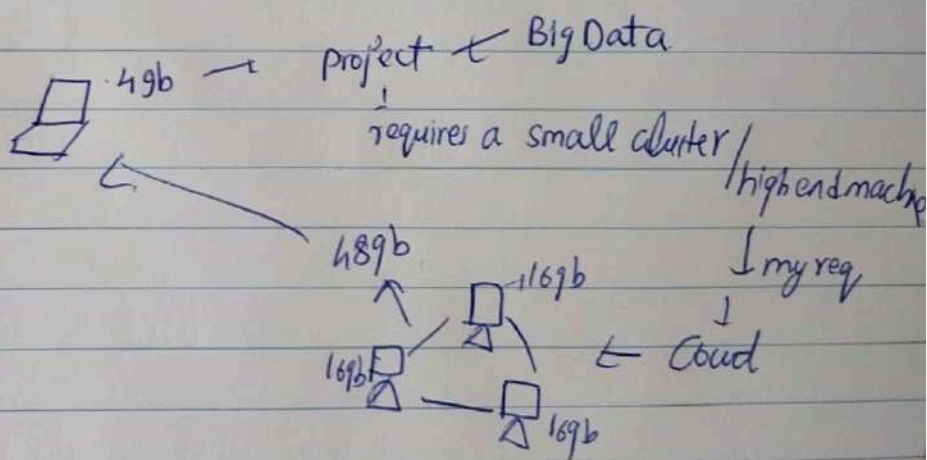 4gb
project
Big Data
requires a small cluster /
high end machine
48gb
my req
16gb
Coud
16gb
16gb